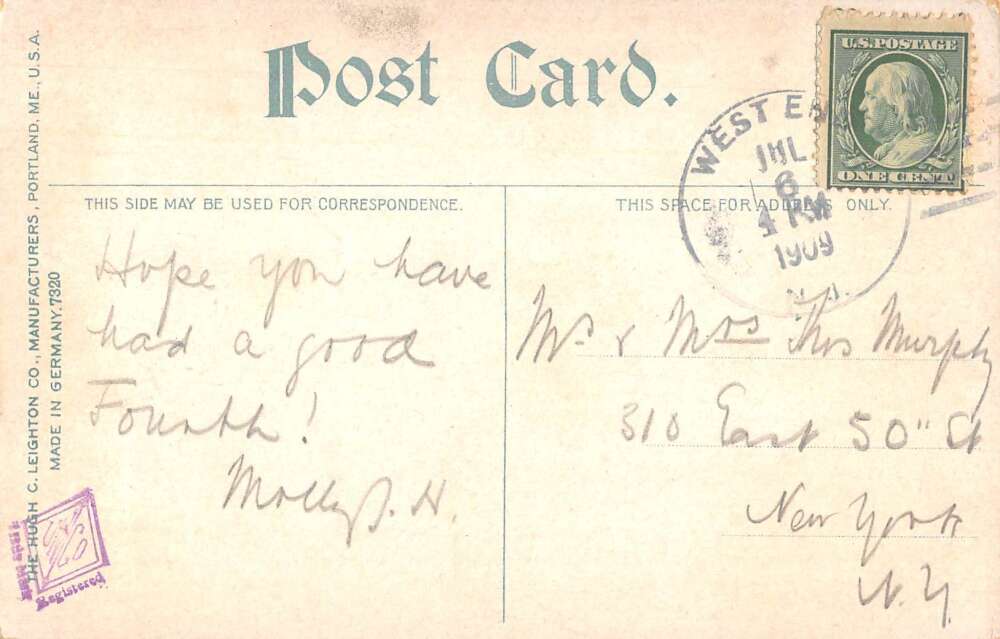 Post Card.
U.S. POSTAGE
ONE CENT
WEST EN
JUL
6
4 PM
1909
N.J.
THIS SIDE MAY BE USED FOR CORRESPONDENCE.
THIS SPACE FOR ADDRESS ONLY.
Hope you have
had a good
Fourth!
Molly J. H.
Mr & Mrs Thos Murphy
310 East 50" St
New York
N.Y.
THE HUGH C. LEIGHTON CO., MANUFACTURERS, PORTLAND, ME., U.S.A.
MADE IN GERMANY. 7320
Registered